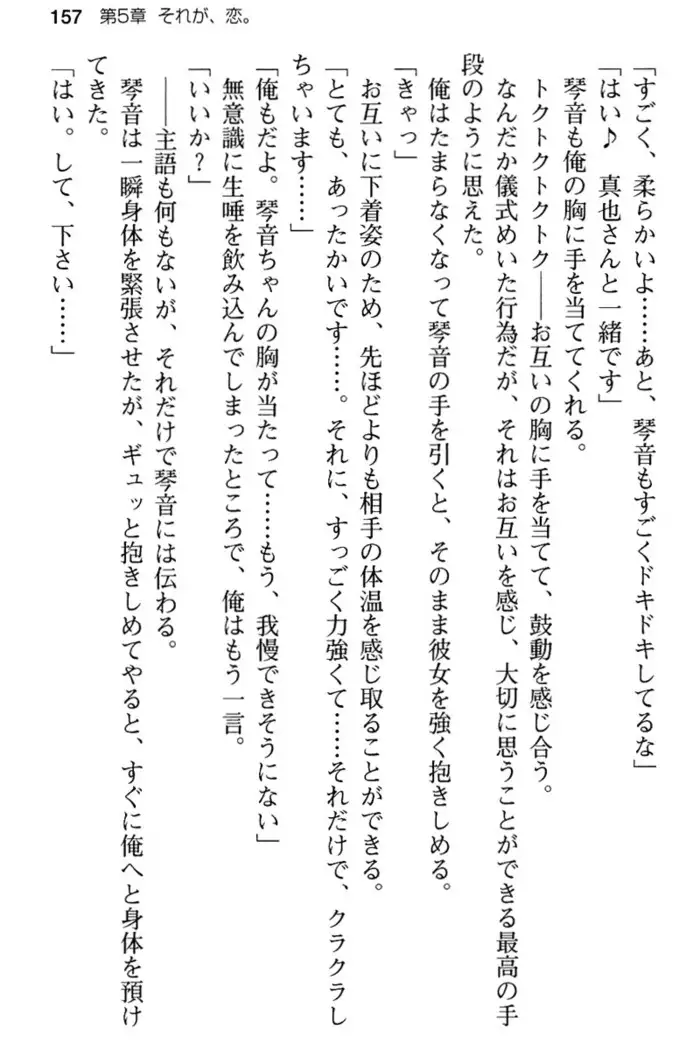 157 第5章 それが、恋。
「すごく、柔らかいよ……あと、琴音もすごくドキドキしてるな」
「はい♪　真也さんと一緒です」
琴音も俺の胸に手を当ててくれる。
トクトクトクトク――お互いの胸に手を当てて、鼓動を感じ合う。
なんだか儀式めいた行為だが、それはお互いを感じ、大切に思うことができる最高の手
段のように思えた。
俺はたまらなくなって琴音の手を引くと、そのまま彼女を強く抱きしめる。
「きゃっ」
お互いに下着姿のため、先ほどよりも相手の体温を感じ取ることができる。
「とても、あったかいです……。それに、すっごく力強くて……それだけで、クラクラし
ちゃいます……」
「俺もだよ。琴音ちゃんの胸が当たって……もう、我慢できそうにない」
無意識に生唾を飲み込んでしまったところで、俺はもう一言。
「いいか？」
――主語も何もないが、それだけで琴音には伝わる。
琴音は一瞬身体を緊張させたが、ギュッと抱きしめてやると、すぐに俺へと身体を預け
てきた。
「はい。して、下さい……」